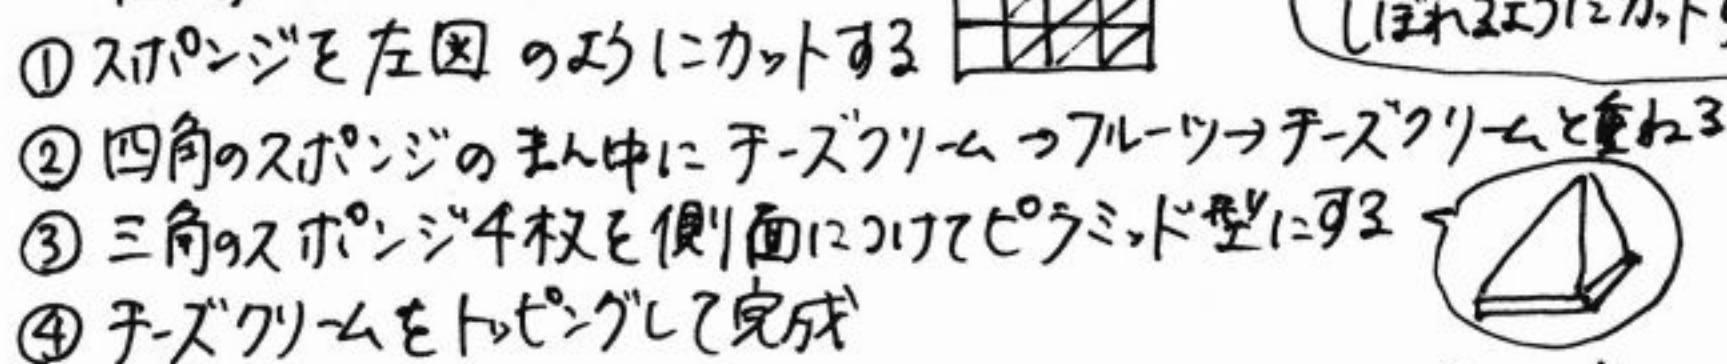 しぼれるようにカット
①スポンジを左図のようにカットする
②四角のスポンジのまん中にチーズクリーム→フルーツ→チーズクリームと重ねる
③三角のスポンジ4枚を側面につけてピラミッド型にする
④チーズクリームをトッピングして完成